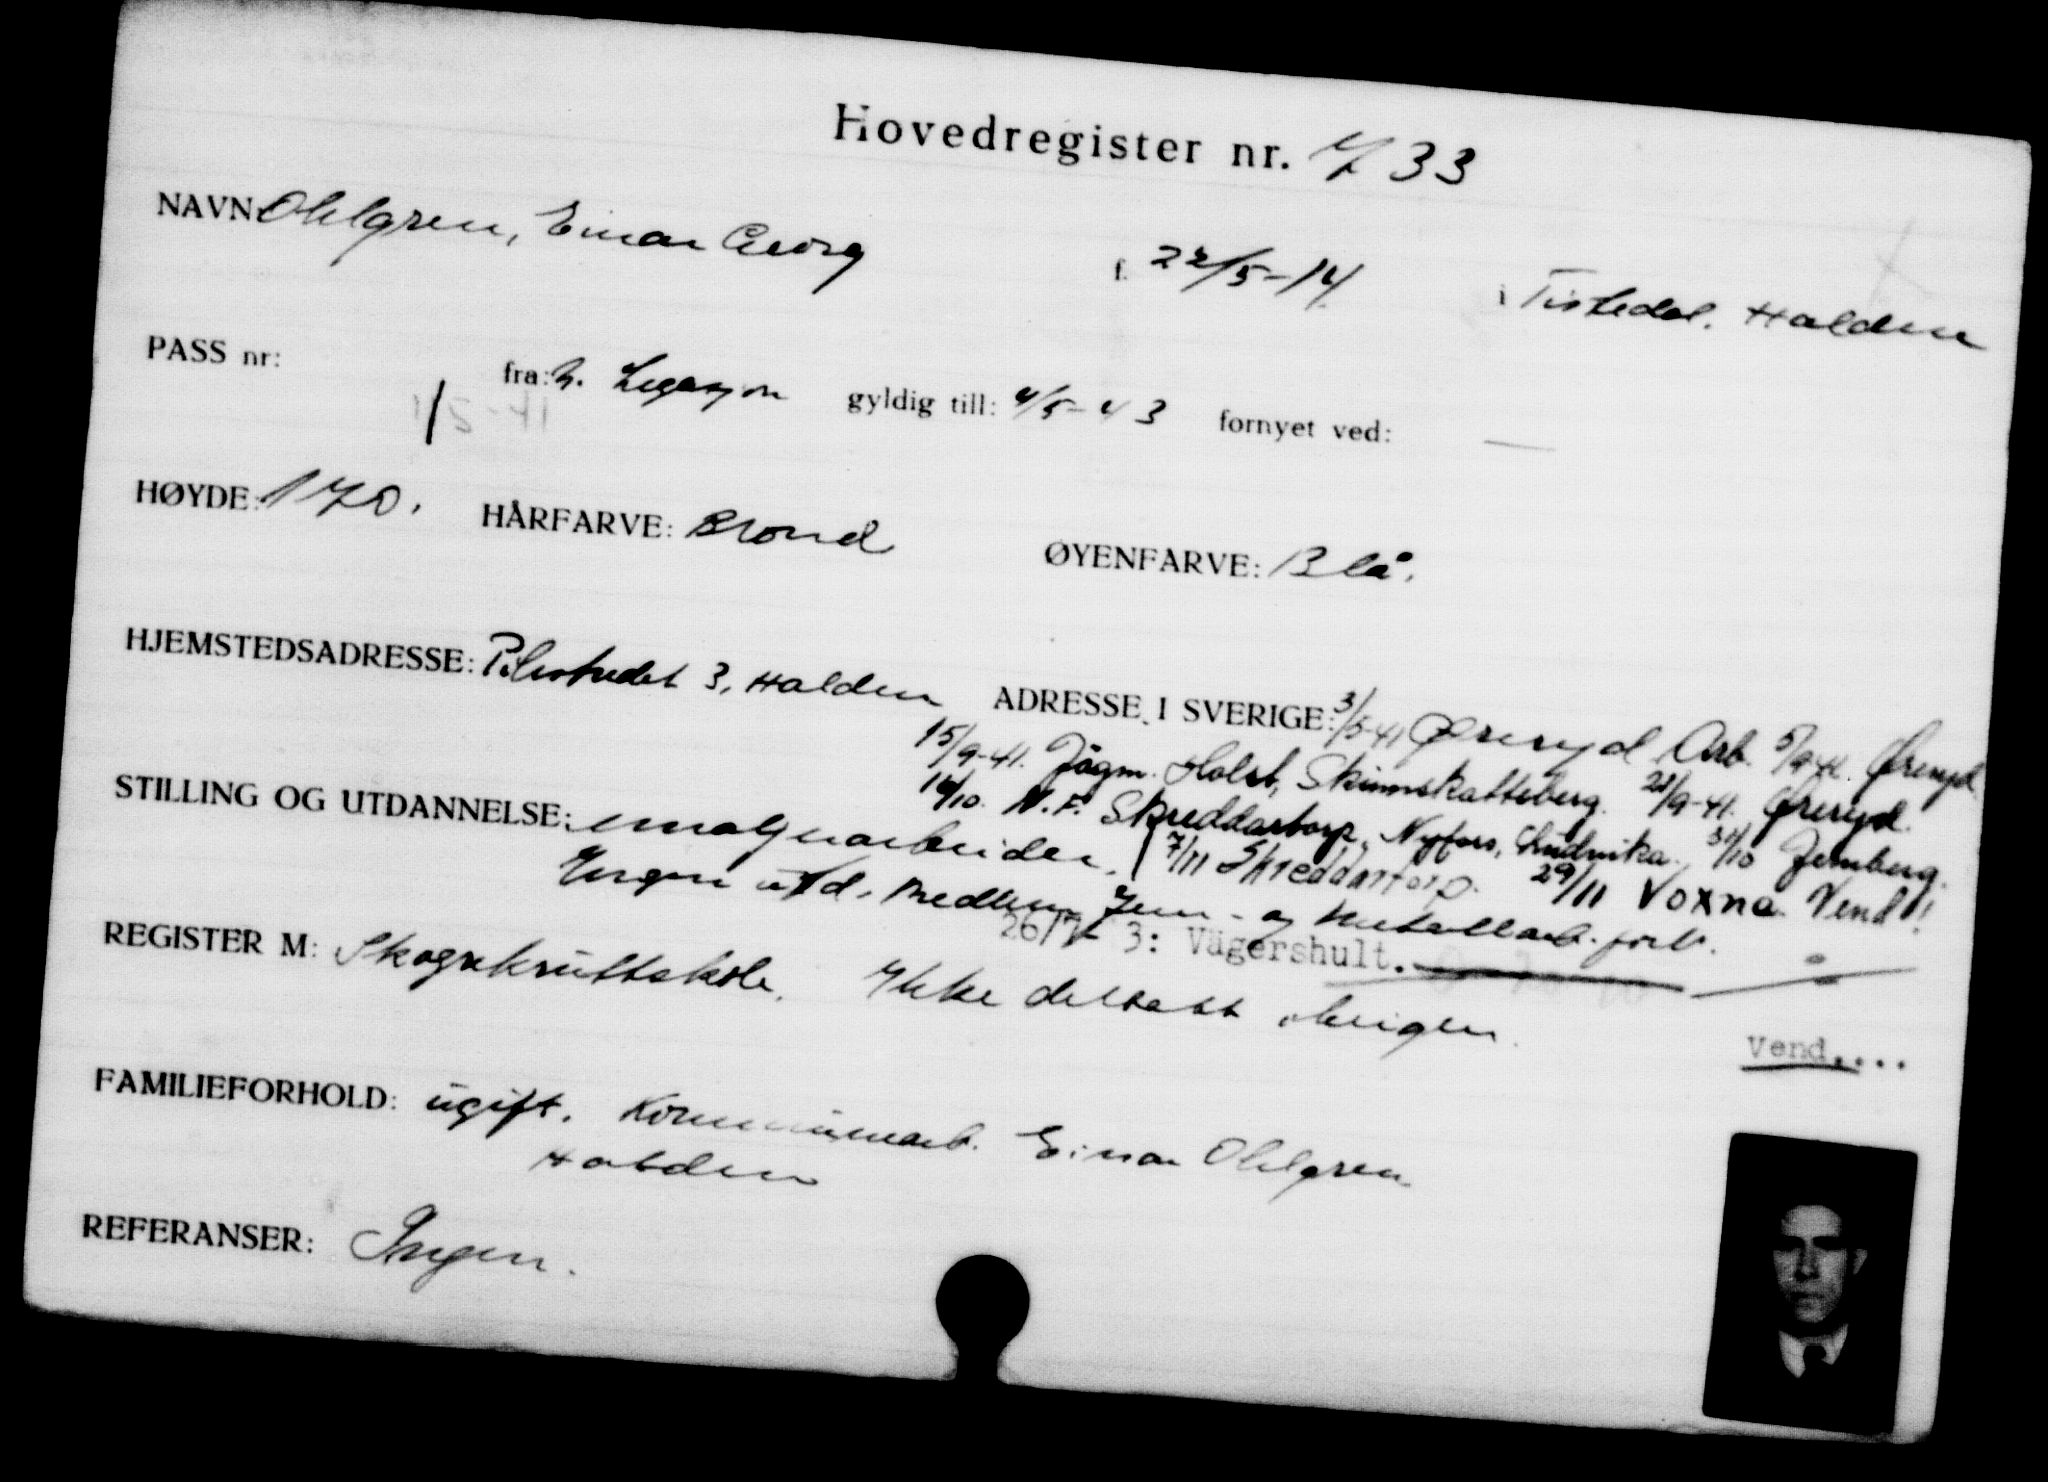 Hovedregister nr. 733
NAVN: Ohlgren, Einar Georg f. 22/5-14 i Tistedal. Halden
PASS nr: fra: N. Legasjon gyldig till: 4/5-43 fornyet ved: —
1/5-41
HØYDE: 170. HÅRFARVE: Blond ØYENFARVE: Blå.
HJEMSTEDSADRESSE: Pilestredet 3, Halden ADRESSE I SVERIGE: 3/5-41 Øreryd Arb. 5/9-41. Øreryd
15/9-41. Jägm. Holst, Skinnskatteberg. 28/9-41. Øreryd.
14/10. N.F. Skreddartorp, Nyfors, Ludvika. 31/10 Jernberg.
STILLING OG UTDANNELSE: emaljearbeider. 7/11 Skreddartorp. 29/11 Voxna. Vend!
Ingen utd. medlem Jern- og Metallarb. forb.
26/7- 3: Vägershult.
REGISTER M: Skogskrultskole. Ikke deltatt i krigen.
Vend....
FAMILIEFORHOLD: ugift. Kommunearb. Einar Ohlgren
Halden
REFERANSER: Ingen.